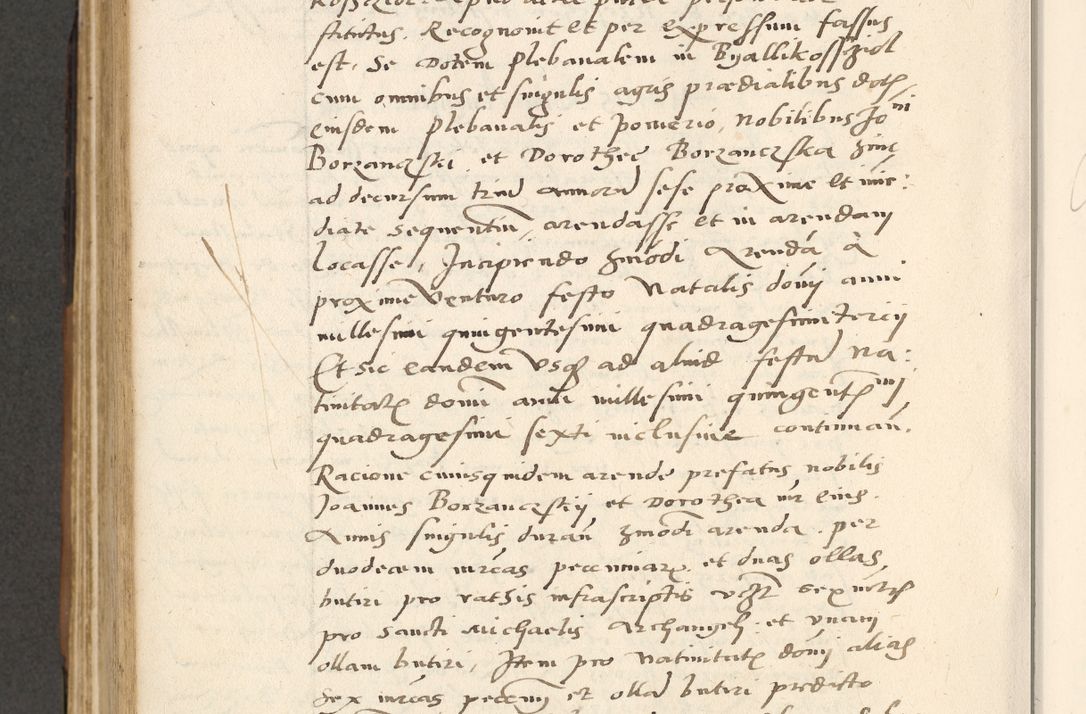 stitutus. Recognovit et per expressum fassus
est, Se Dotem plebanalem in Byallikossziol
cum omnibus et singulis agris prædialibus dotis
eiusdem plebanalis et powerio, nobilibus Joni
Borzanczski et Dorothee Borzanczska hinc
ad decursum trium annorum sese proxime et ime:
diate sequentium, arendasse et in arendam
locasse, Incipiendo hmoodi Arenda à
proxime venturo festo Natalis domi anni
millesimi quingentesimi quadragesimi tercii
Et sic eandem usque ad aliud festum Na:
tivitatis domini anni millesimi quingentesimi
quadragesimi sexti inclusive continuan.
Racione cuiusquidem arende prefatus nobilis
Joannes Borzanczskij et Dorothea mr eius.
Annis singulis duran hmodi arenda. per
duodecem mrcas pecuniarum et duas ollas
butiri pro rathis infrascriptis vcz sex mrcas
pro sancti Michaelis Archangeli et unam
ollam butiri, Item pro Nativitate domi alias
sex mrcas pecuni et olla butiri predicto